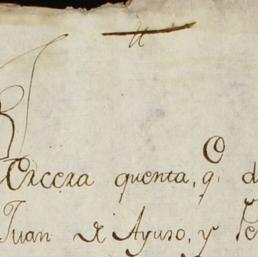 Tercera quenta, q.e d
Juan de Ayuso, y Pe